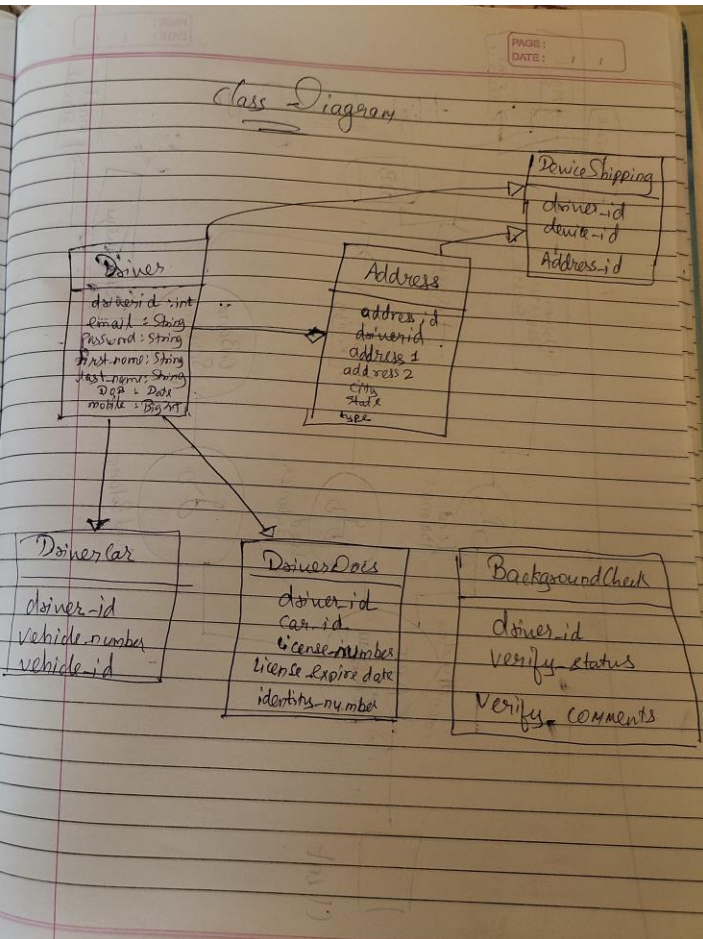 PAGE:
DATE: / /
Class Diagram
DeviceShipping
driver_id
device_id
Address_id
Driver
driverid : int
email : String
Password : String
first_name: String
last_name: String
DOB : Date
mobile : BigInt
Address
address_id
driverid
address 1
address 2
city
state
type
DriverCar
driver_id
vehicle_number
vehicle_id
DriverDocs
driver_id
car_id
license_number
license_expire date
identity_number
BackgroundCheck
driver_id
verify_status
verify_comments